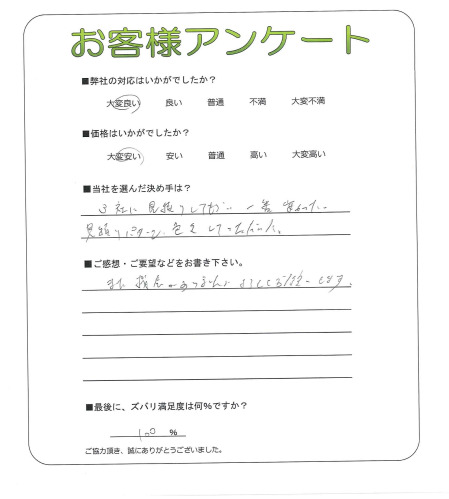 お客様アンケート
■弊社の対応はいかがでしたか？
大変良い 良い 普通 不満 大変不満
■価格はいかがでしたか？
大変安い 安い 普通 高い 大変高い
■当社を選んだ決め手は？
3社に見積りして 一番
見積り
■ご感想・ご要望などをお書き下さい。
また機会がありましたら
■最後に、ズバリ満足度は何%ですか？
100 %
ご協力頂き、誠にありがとうございました。